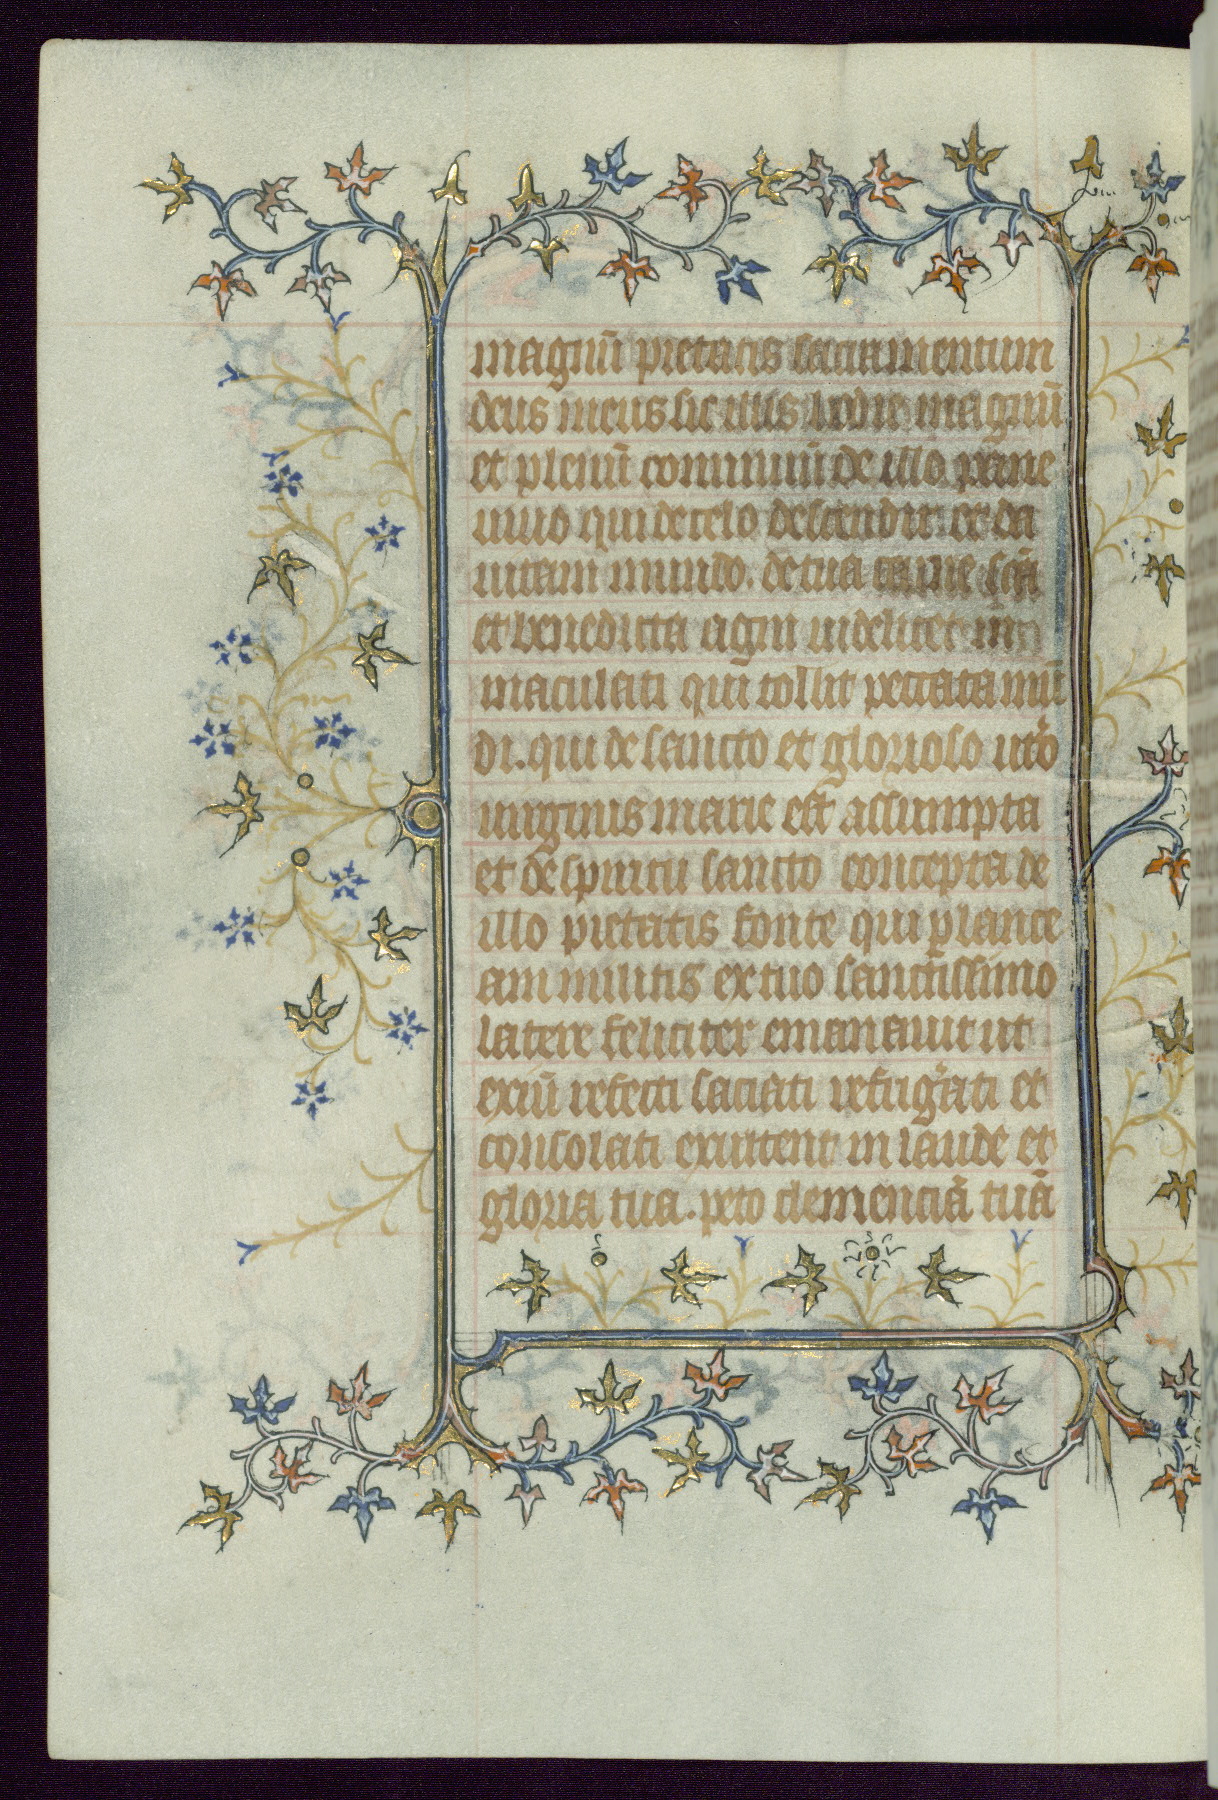 magnū pietatis sacramentum
deus meus sic illis hodie magnū
et plenū conuiuiū de illo pane
uiuo qui de celo descendit et dat
uitam mundo. de tua carne scā
et benedicta agni uidelicet in
maculati qui tollit peccata mū
di. qui de sancto et glorioso utō
uirginis marie est assumpta
et de spiritu sancto concepta de
illo pietatis fonte qui p lance
am militis ex tuo sanctissimo
latere feliciter emanauit ut
exīn refecti saciati refrigati et
consolati exultent in laude et
gloria tua. peto clemenciā tuā